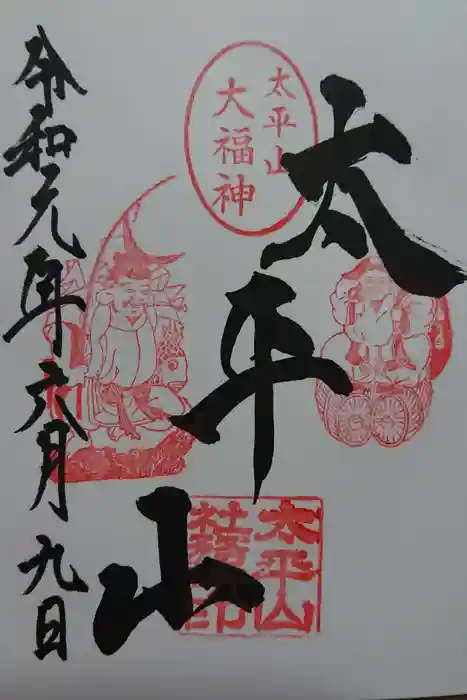 太平山
大福神
太平山
太平山
社務所印
令和元年六月九日